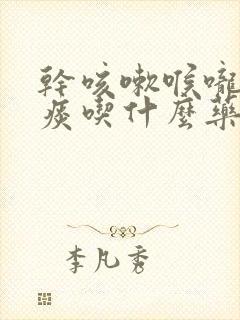 幹咳嗽喉嚨
痰喫什麼藥
李凡秀